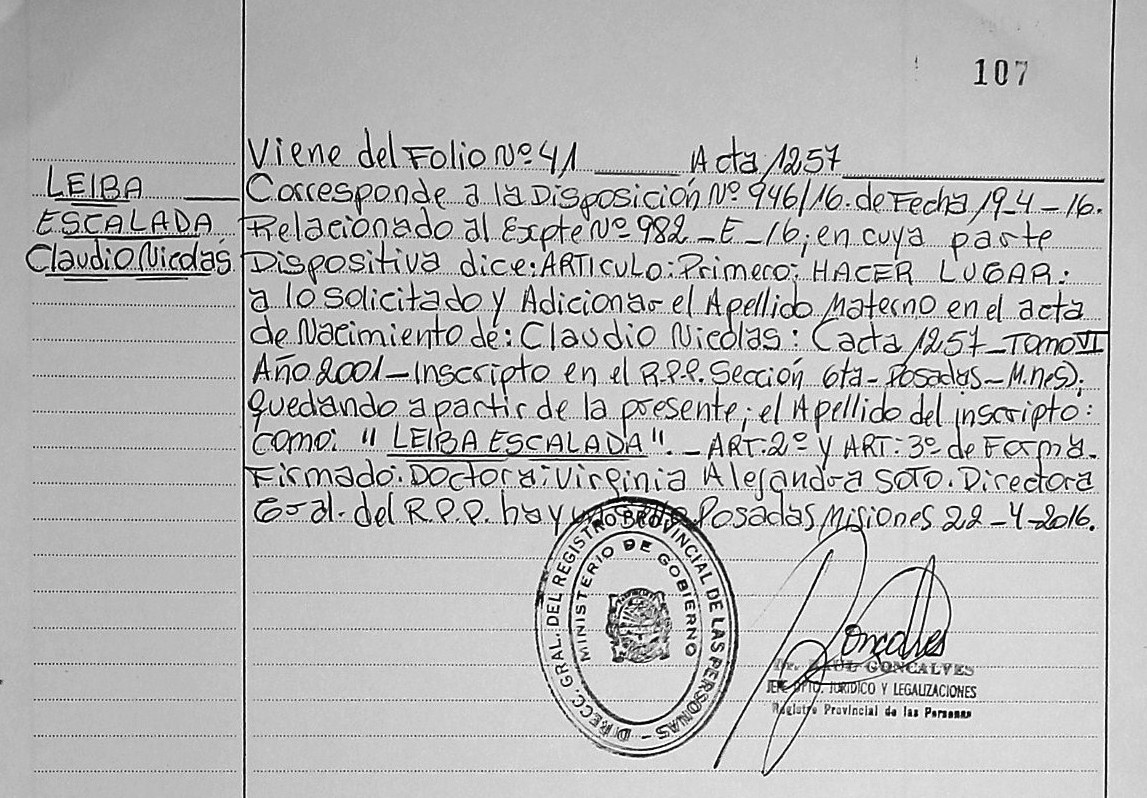 107
Viene del Folio Nº 41 Acta 1257
LEIBA
ESCALADA
Claudio Nicolás
Corresponde a la Disposición Nº 946/16. de Fecha 19-4-16.
Relacionado al Expte Nº 982-E-16; en cuya parte
Dispositiva dice: ARTICULO: Primero: HACER LUGAR:
a lo solicitado y Adicionar el Apellido Materno en el acta
de Nacimiento de: Claudio Nicolas: (acta 1257-Tomo VI
Año 2001-Inscripto en el R.P.P. Sección 6ta-Posadas-M.nes);
quedando a partir de la presente; el Apellido del inscripto:
como: "LEIBA ESCALADA". - ART. 2º y ART: 3º de Forma.
Firmado: Doctora: Virginia Alejandra SOTO. Directora
Gral. del R.P.P. hay un Sello Posadas Misiones 22-4-2016.
DIRECC. GRAL. DEL REGISTRO PROVINCIAL DE LAS PERSONAS -
MINISTERIO DE GOBIERNO
Goncalves
Dr. RAUL GONCALVES
JEFE DPTO. JURIDICO Y LEGALIZACIONES
Registro Provincial de las Personas